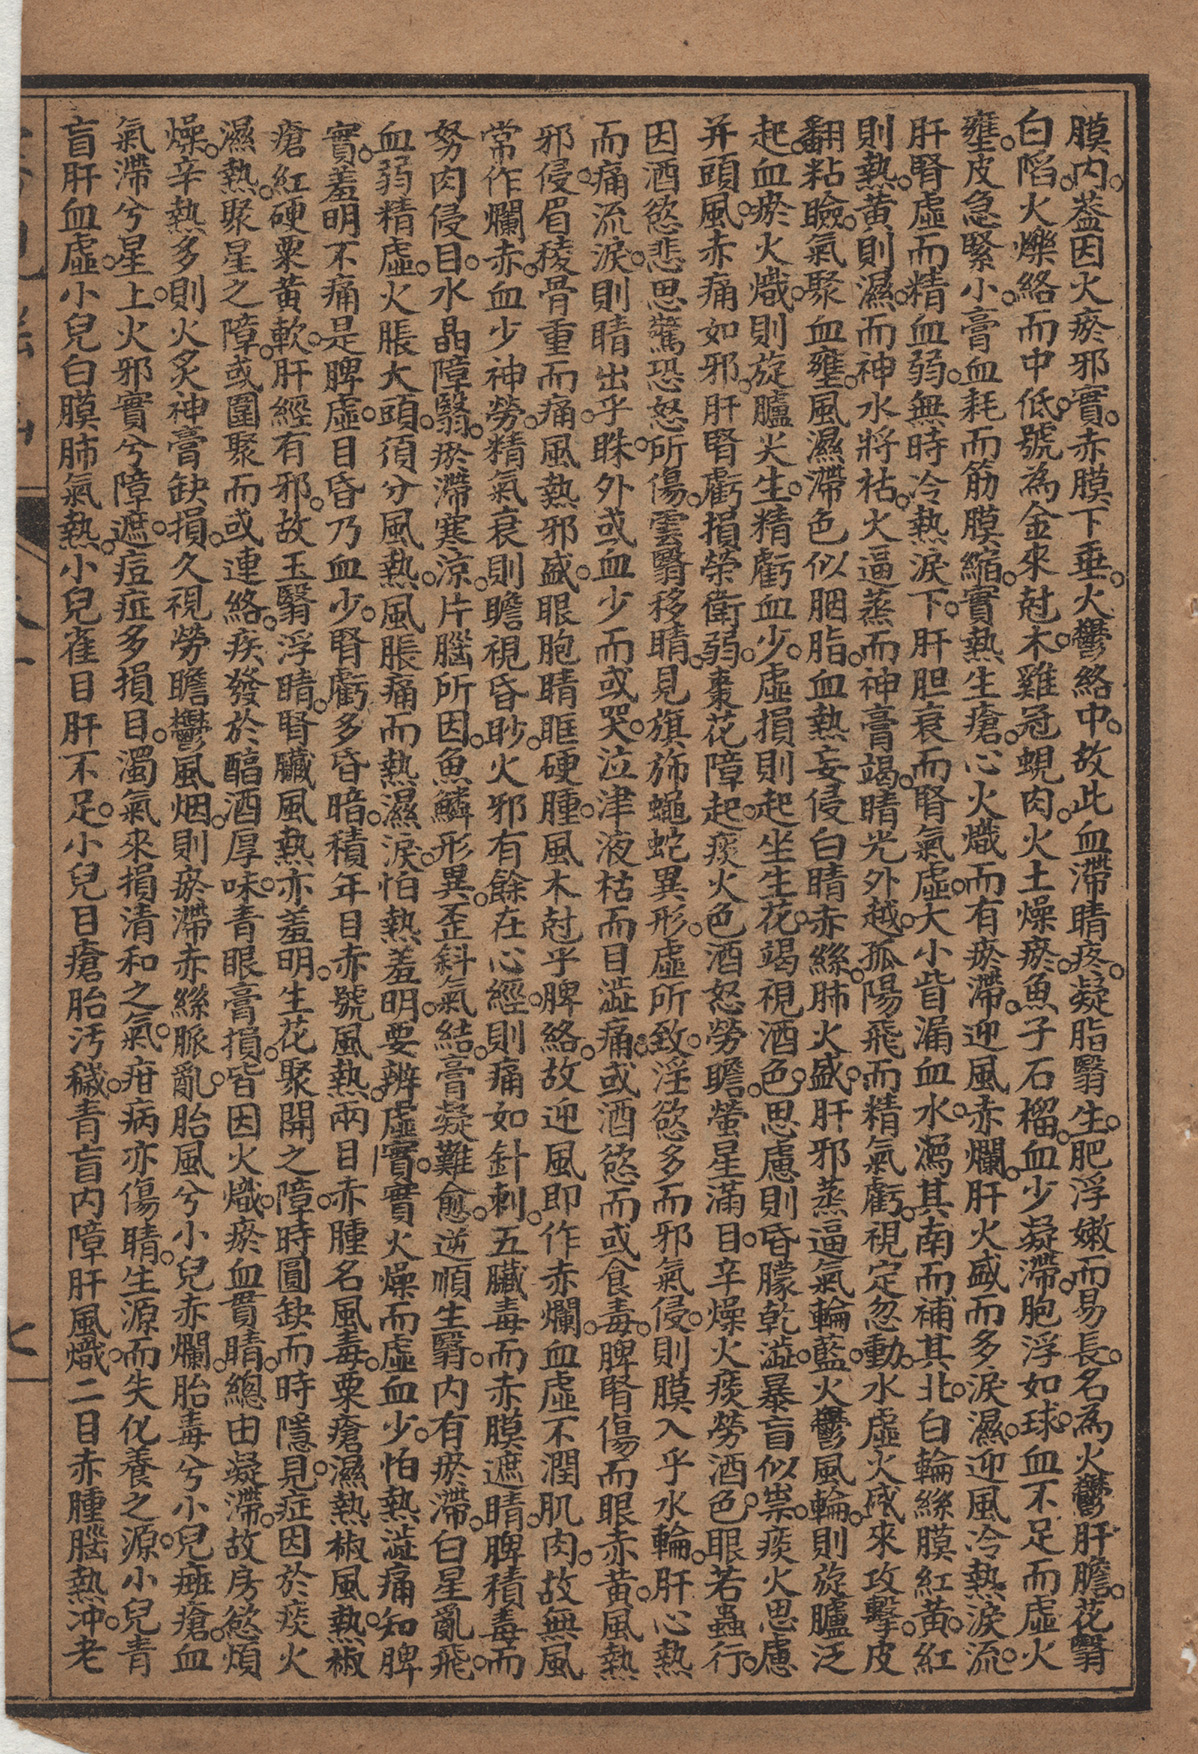 膜內。葢因火瘀邪實。赤膜下垂。火鬱絡中。故此血滯睛疼。凝脂翳生。肥浮嫩而易長。名為火鬱肝膽。花翳
白陷。火爍絡而中低。號為金來尅木。雞冠蜆肉。火土燥瘀。魚子石榴。血少凝滯。胞浮如球。血不足而虛火
壅。皮急緊小。膏血耗而筋膜縮。實熱生瘡。心火熾而有瘀滯。迎風赤爛。肝火盛而多淚濕。迎風冷熱淚流。
肝腎虛而精血弱。無時冷熱淚下。肝胆衰而腎氣虛。大小眥漏血水。瀉其南而補其北。白輪絲膜紅黃。紅
則熱。黃則濕。而神水將枯。火逼蒸而神膏竭。睛光外越。孤陽飛而精氣虧。視定忽動。水虛火盛來攻擊。皮
翻粘瞼。氣聚血壅。風濕滯色似胭脂。血熱妄侵白睛赤絲。肺火盛。肝邪蒸逼氣輪藍。火鬱風輪。則旋臚泛
起。血瘀火熾。則旋臚尖生。精虧血少。虛損則起坐生花。竭視酒色。思慮則昏朦乾澁。暴盲似祟。痰火思慮
并頭風。赤痛如邪。肝腎虧損榮衛弱。棗花障起。痰火色酒怒勞瞻。螢星滿目。辛燥火痰勞酒色。眼若蟲行。
因酒慾悲思驚恐怒所傷。雲翳移睛。見旗旆蠅蛇異形。虛所致。淫慾多而邪氣侵。則膜入乎水輪。肝心熱
而痛流淚。則睛出乎眛外。或血少而或哭泣。津液枯而目澁痛。或酒慾而或食毒。脾腎傷而眼赤黃。風熱
邪侵。眉稜骨重而痛。風熱邪盛。眼胞睛眶硬腫。風木尅乎脾絡。故迎風即作赤爛。血虛不潤肌肉。故無風
常作爛赤。血少神勞。精氣衰則瞻視昏眇。火邪有餘在心經。則痛如針刺。五臟毒而赤膜遮睛。脾積毒而
努肉侵目。水晶障翳。瘀滯寒涼。片腦所因。魚鱗形異。歪斜氣結。膏凝難愈。逆順生翳。內有瘀滯。白星亂飛。
血弱精虛。火脹大頭。須分風熱。風脹痛而熱濕淚。怕熱羞明。要辨虛實。實火燥而虛血少。怕熱澁痛知脾
實。羞明不痛是脾虛。目昏乃血少。腎虧多昏暗。積年目赤號風熱。兩目赤腫名風毒。粟瘡濕熱椒風熱。椒
瘡紅硬粟黃軟。肝經有邪。故玉翳浮睛。腎臟風熱亦羞明。生花聚開之障。時圓缺而時隱見。症因於痰火
濕熱。聚星之障。或圍聚而或連絡。疾發於醞酒厚味。青眼膏損。皆因火熾。瘀血貫睛。總由凝滯。故房慾煩
燥。辛熱多。則火炙神膏缺損。久視勞瞻鬱風烟。則瘀滯赤絲脈亂。胎風兮小兒赤爛。胎毒兮小兒痘瘡。血
氣滯兮星上。火邪實兮障遮。痘症多損目。濁氣來損清和之氣。疳病亦傷睛。生源而失化養之源。小兒青
盲肝血虛。小兒白膜肺氣熱。小兒雀目肝不足。小兒目瘡胎汚穢。青盲內障肝風熾。二目赤腫腦熱冲。老